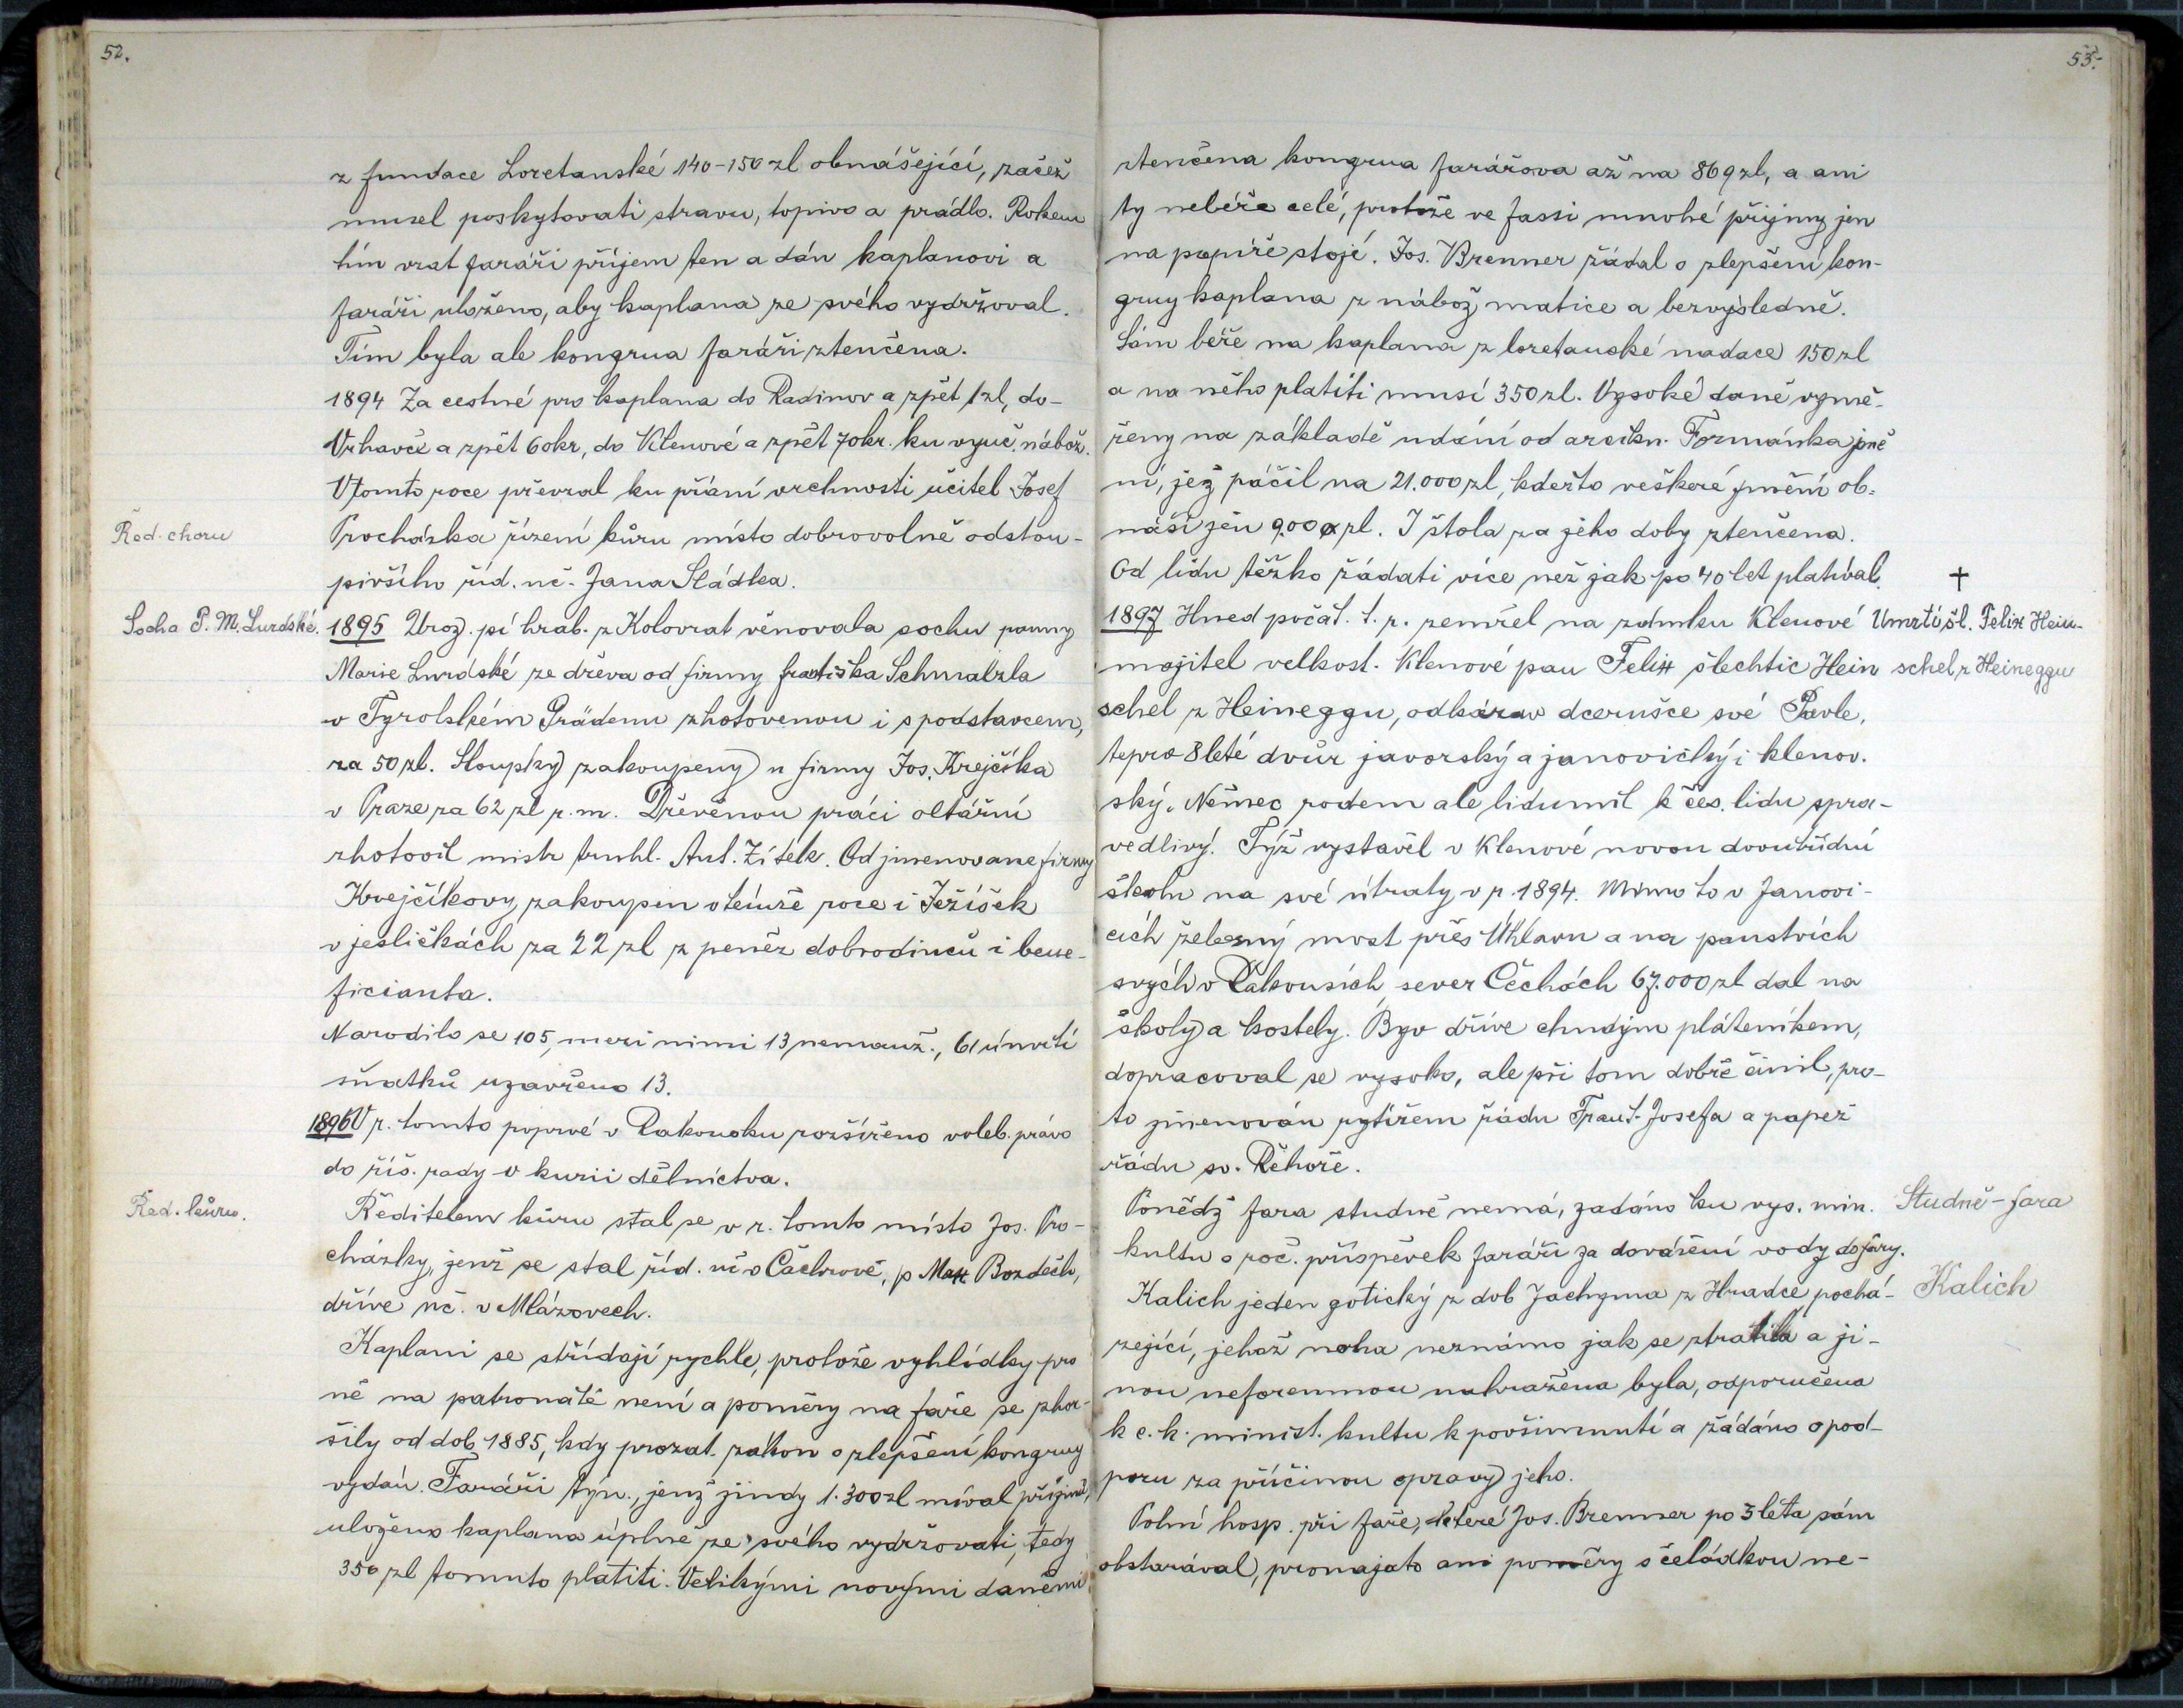 52.
z fundace Loretanské 140-150 zl obnášející, začež
musel poskytovati stravu, topivo a prádlo. Rokem
tím vzat faráři příjem ten a dán kaplanovi a
faráři uloženo, aby kaplana ze svého vydržoval.
Tím byla ale kongrua faráři ztenčena.
1894 Za cestné pro kaplana do Radinov a zpět 1 zl, do-
Vrhavče a zpět 60kr, do Klenové a zpět 70kr. ku vyuč. nábož.
V tomto roce převzal ku přání vrchnosti učitel Josef
Řed. choru
Procházka řízení kůru místo dobrovolně odstou-
pivšího říd. uč. Jana Sládka.
Socha P. M. Lurdské.
1895 Uroz. pí hrab. z Kolovrat věnovala sochu panny
Marie Lurdské ze dřeva od firmy františka Schmalzla
v Tyrolském Grädenu zhotovenou i s podstavcem,
za 50 zl. Sloupky zakoupeny u firmy Jos. Krejčíka
v Praze za 62 zl r. m. Dřevěnou práci oltářní
zhotovil mistr truhl. Ant. Zítek. Od jmenované firmy
Krejčíkovy zakoupen v témže roce i Ježíšek
v jesličkách za 22 zl z peněz dobrodinců i bene-
ficianta.
Narodilo se 105, mezi nimi 13 nemanž., 61 úmrtí
sňatků uzavřeno 13.
1896 V r. tomto poprvé v Rakousku rozšířeno voleb. právo
do říš. rady v kurii dělnictva.
Řed. kůru.
Ředitelem kůru stal se v r. tomto místo Jos. Pro-
cházky, jenž se stal říd. uč v Čachrově, p Max Bozděch,
dříve uč. v Mlázovech.
Kaplani se střídají rychle, protože vyhlídky pro
ně na patronátě není a poměry na faře se zhor-
šily od dob 1885, kdy prozat. zákon o zlepšení kongruy
vydán. Faráři týn., jenž jindy 1.300zl míval příjmů,
uloženo kaplana úplně ze svého vydržovati, tedy
350 zl tomuto platiti. Velikými novými daněmi
53.
ztenčena kongrua farářova až na 869zl, a ani
ty nebéře celé, protože ve fassi mnohé příjmy jen
na papíře stojí. Jos. Brenner žádal o zlepšení kon-
gruy kaplana z nábož matice a bezvýsledně.
Sám béře na kaplana z loretanské nadace 150 zl
a na něho platiti musí 350 zl. Vysoké daně vymě-
řeny na základě udání od arcikn. Formánka jmě
ní, jež páčil na 21.000 zl, kdežto veškeré jmění ob-
náší jen 9.000 zl. I štola za jeho doby ztenčena.
Od lidu těžko žádati více než jak po 40 let platíval.
†
1897 Hned počát. t. r. zemřel na zámku Klenové
Umrtí šl. Felix Hein-
majitel velkost. Klenové pan Felix šlechtic Hein
schel z Heineggu
schel z Heineggu, odkázav dcerušce své Pavle,
teprve 8leté dvůr javorský a janovický i klenov.
ský. Němec rodem ale lidumil k čes. lidu spra-
vedlivý. Týž vystavěl v Klenové novou dvoutřídní
školu na své útraty v r. 1894. Mimo to v Janovi-
cích železný most přes Úhlavu a na panstvích
svých v Rakousích sever Čechách 67.000 zl dal na
školy a kostely. Byv dříve chudým plátenikem,
dopracoval se vysoko, ale při tom dobře činil, pro-
to jmenován rytířem řádu Frant. Josefa a papež
řádu sv. Řehoře.
Ponědž fara studně nemá, žadáno ku vys. min.
Studně - fara
kultu o roč. příspěvek faráři za dovážení vody do fáry.
Kalich jeden gotický z dob Jachyma z Hradce pochá-
Kalich
zející, jehož noha neznámo jak se ztratila a ji-
nou neforemnou nahražena byla, odporučena
k c. k. minist. kultu k povšimnutí a žádáno o pod-
poru za příčinou opravy jeho.
Polní hosp. při faře, které Jos. Brenner po 3 léta sám
obstarával, pronajato ani poměry s čeládkou ne-